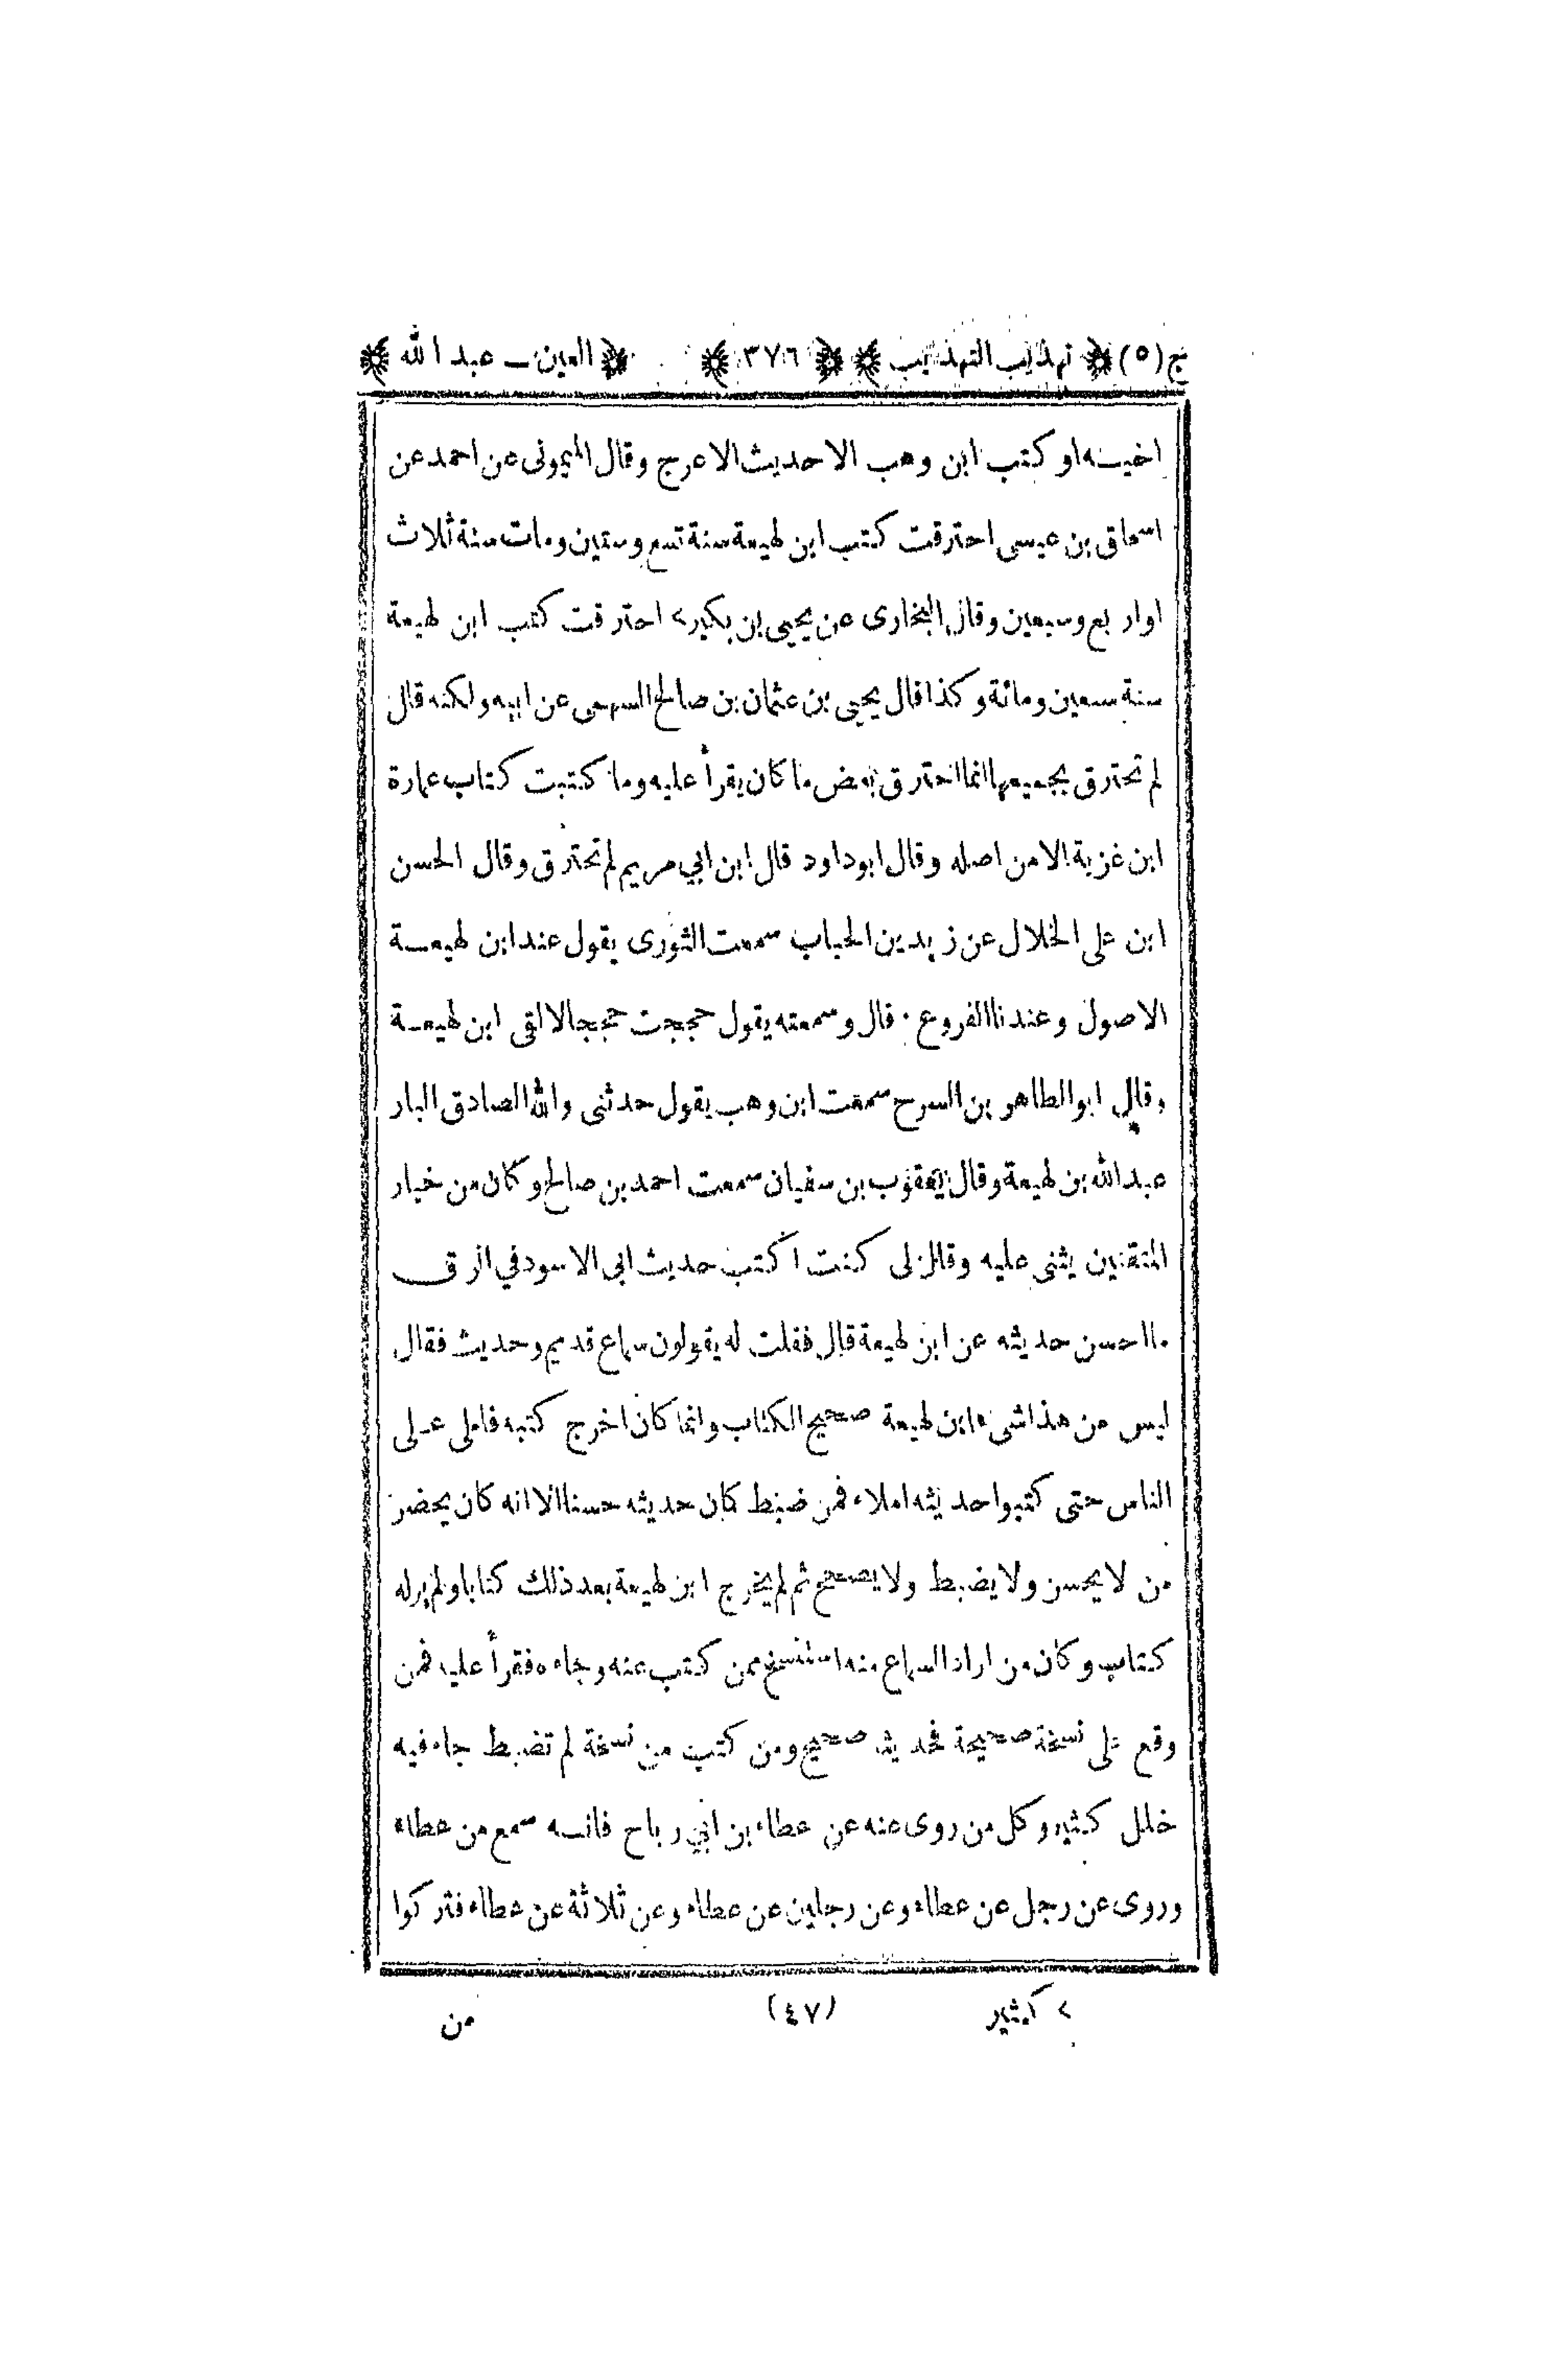 ج (٥) تهذيب التهذيب ٣٧٦ العين ـ عبد الله
اخيه او كتب ابن وهب الا حديث الاعرج وقال الميمونى عن احمد عن
اسحاق بن عيسى احترقت كتب ابن لهيعة سنة تسع وستين ومات سنة ثلاث
او اربع وسبعين وقال البخارى عن يحيى بن بكير > احترقت كتب ابن لهيعة
سنة سبعين ومائة وكذا قال يحيى بن عثمان بن صالح السهمى عن ابيه ولكنه قال
لم تحترق بجميعها انما احترق بعض ما كان يقرأ عليه وما كتبت كتاب عمارة
ابن غزية الا من اصله وقال ابوداود قال ابن ابي مريم لم تحترق وقال الحسن
ابن على الخلال عن زيد بن الحباب سمعت الثورى يقول عند ابن لهيعة
الاصول وعندنا الفروع . قال وسمعته يقول حججت حججا لالقى ابن لهيعة
وقال ابو الطاهر بن السرح سمعت ابن وهب يقول حدثنى والله الصادق البار
عبد الله بن لهيعة وقال يعقوب بن سفيان سمعت احمد بن صالح وكان من خيار
المتقنين يثنى عليه وقال لى كنت اكتب حديث ابى الاسود في الرق
ما احسن حديثه عن ابن لهيعة قال فقلت له يقولون سماع قديم وحديث فقال
ليس من هذا شىء ابن لهيعة صحيح الكتاب وانما كان اخرج كتبه فاملى على
الناس حتى كتبوا حديثه املاء فمن ضبط كان حديثه حسنا الا انه كان يحضر
من لا يحسن ولا يضبط ولا يصحح ثم لم يخرج ابن لهيعة بعد ذلك كتابا ولم ير له
كتاب وكان من اراد السماع منه استنسخ ممن كتب عنه وجاءه فقرأ عليه فمن
وقع على نسخة صحيحة فحديثه صحيح ومن كتب من نسخة لم تضبط جاء فيه
خلل كثير وكل من روى عنه عن عطاء بن ابي رباح فانه سمع من عطاء
وروى عن رجل عن عطاء وعن رجلين عن عطاء وعن ثلاثة عن عطاء فتركوا
> كثير (٤٧) من